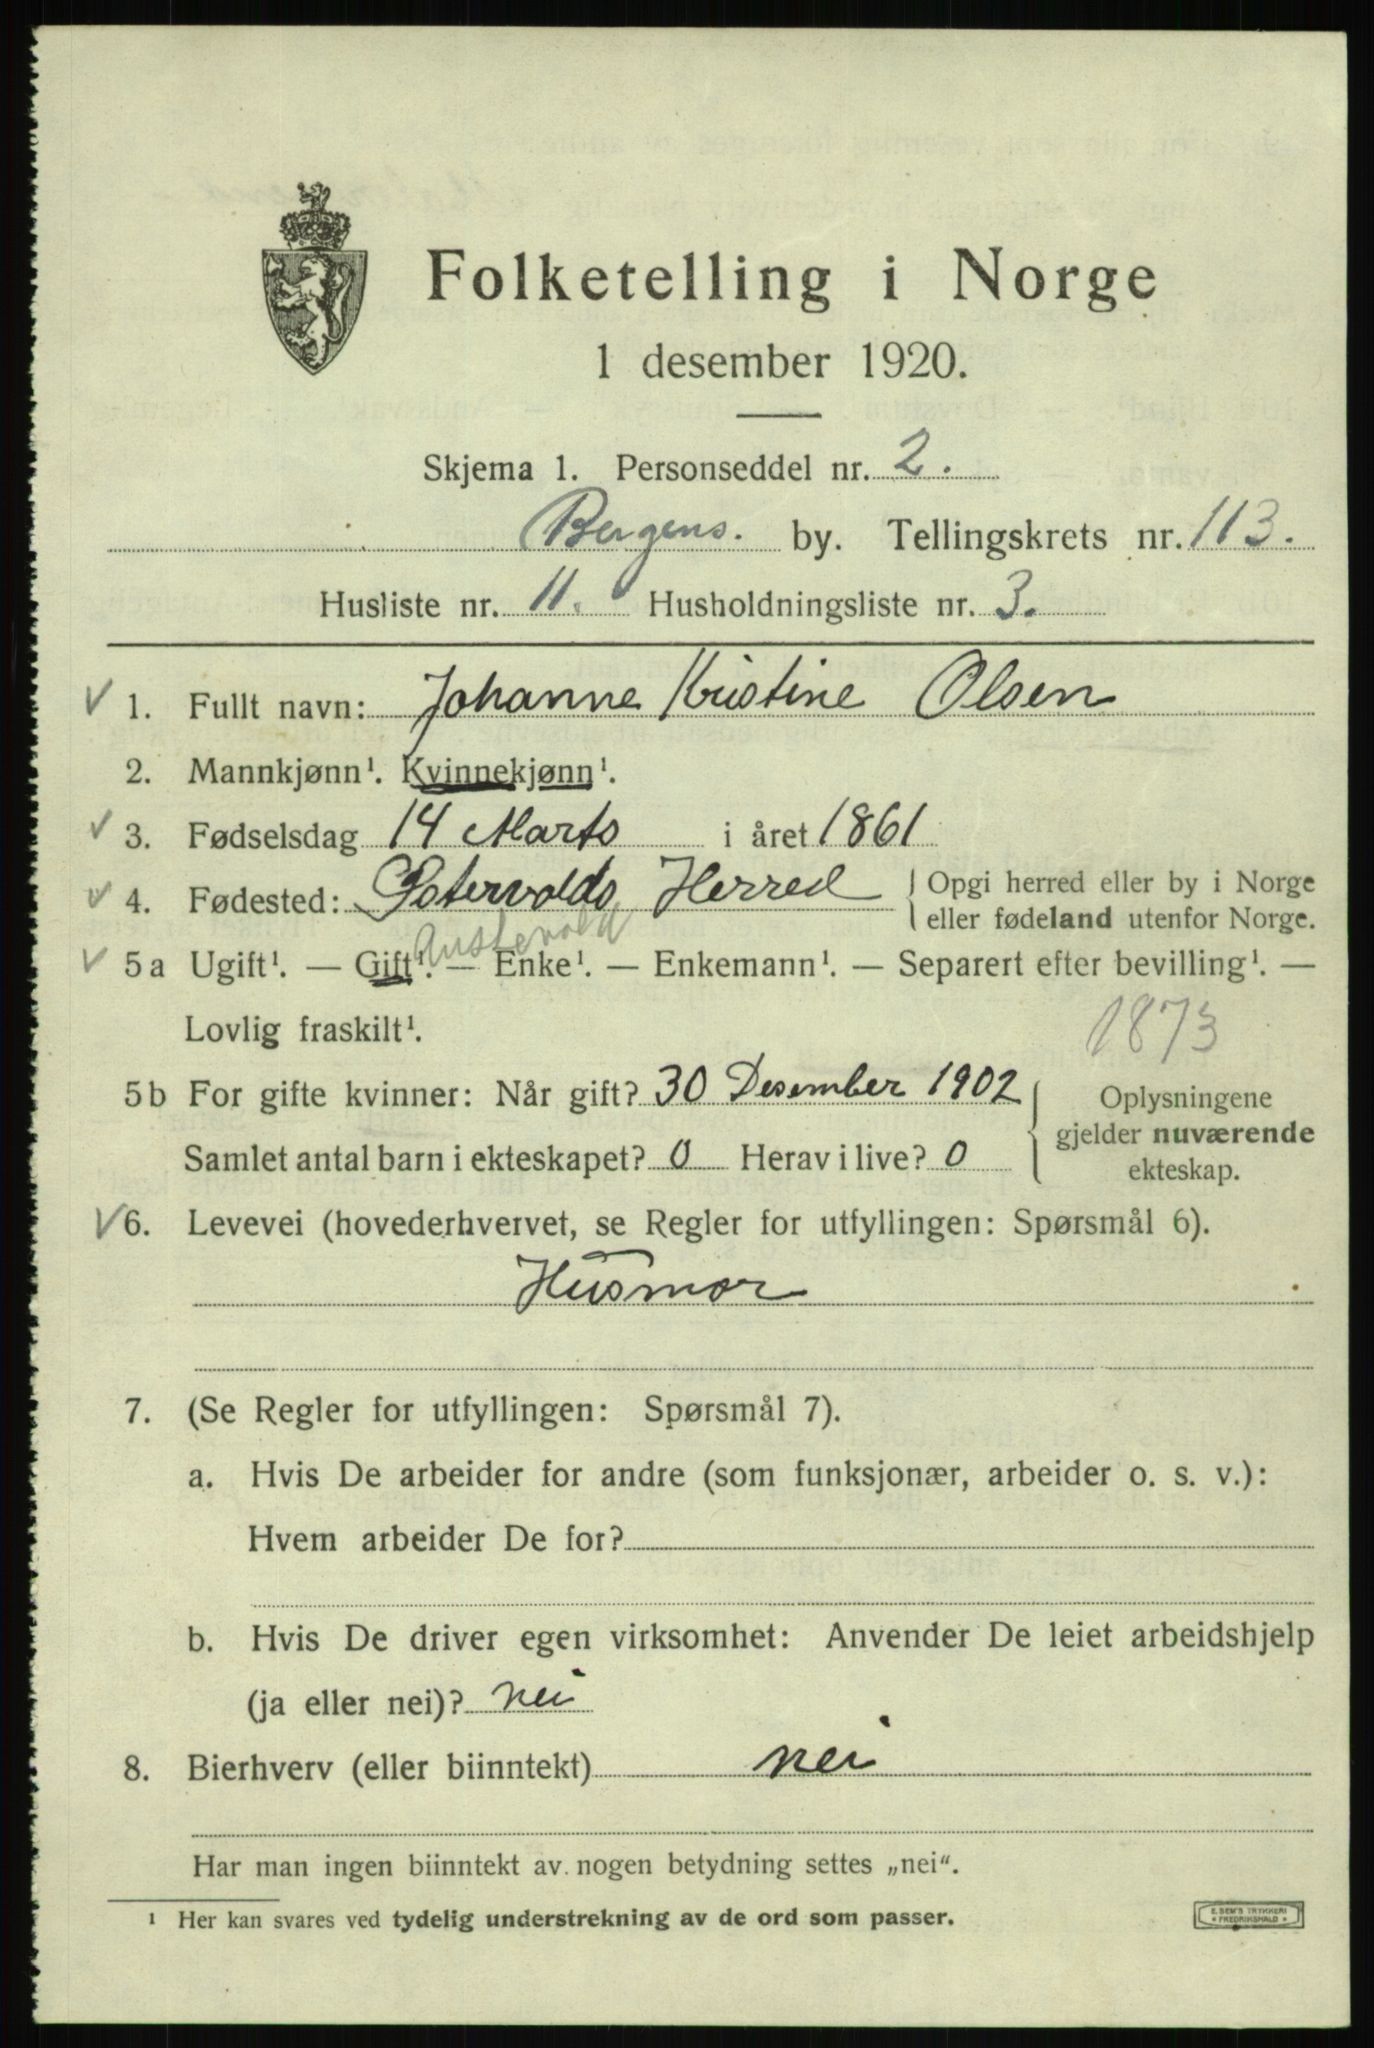 Folketelling i Norge
1 desember 1920.
Skjema 1. Personseddel nr. 2.
Bergens. by. Tellingskrets nr. 113.
Husliste nr. 11. Husholdningsliste nr. 3.
✓ 1. Fullt navn: Johanne Kristine Olsen
2. Mannkjønn¹. Kvinnekjønn¹.
✓ 3. Fødselsdag 14 Marts i året 1861
✓ 4. Fødested: Østervolds Herred { Opgi herred eller by i Norge
eller fødeland utenfor Norge.
Austevold
✓ 5a Ugift¹. — Gift¹. — Enke¹. — Enkemann¹. — Separert efter bevilling¹. —
Lovlig fraskilt¹.
1873
5b For gifte kvinner: Når gift? 30 Desember 1902
Samlet antal barn i ekteskapet? 0 Herav i live? 0
{ Oplysningene
gjelder nuværende
ekteskap.
✓ 6. Levevei (hovederhvervet, se Regler for utfyllingen: Spørsmål 6).
Husmor
7. (Se Regler for utfyllingen: Spørsmål 7).
a. Hvis De arbeider for andre (som funksjonær, arbeider o. s. v.):
Hvem arbeider De for?
b. Hvis De driver egen virksomhet: Anvender De leiet arbeidshjelp
(ja eller nei)? nei
8. Bierhverv (eller biinntekt) nei
Har man ingen biinntekt av nogen betydning settes „nei“.
¹ Her kan svares ved tydelig understrekning av de ord som passer.
E. SEM'S TRYKKERI
* FREDRIKSHALD *